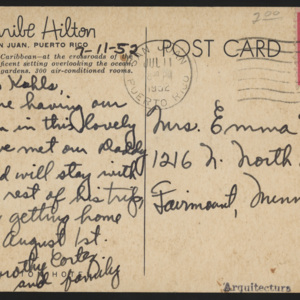 ribe Hilton
N JUAN, PUERTO RICO
7-11-52
Caribbean-at the crossroads of the
ficent setting overlooking the ocean,
gardens, 300 air-conditioned rooms.
Kohls,
re having our
in this lovely
ve met our Daddy
d will stay with
rest of his trip,
getting home
August 1st.
Dorothy Cortez
and family
POST CARD
SAN JUAN
JUL 11
1952
PUERTO RICO
200
Mrs. Emma
1216 N. North
Fairmount, Minn
Arquitectura